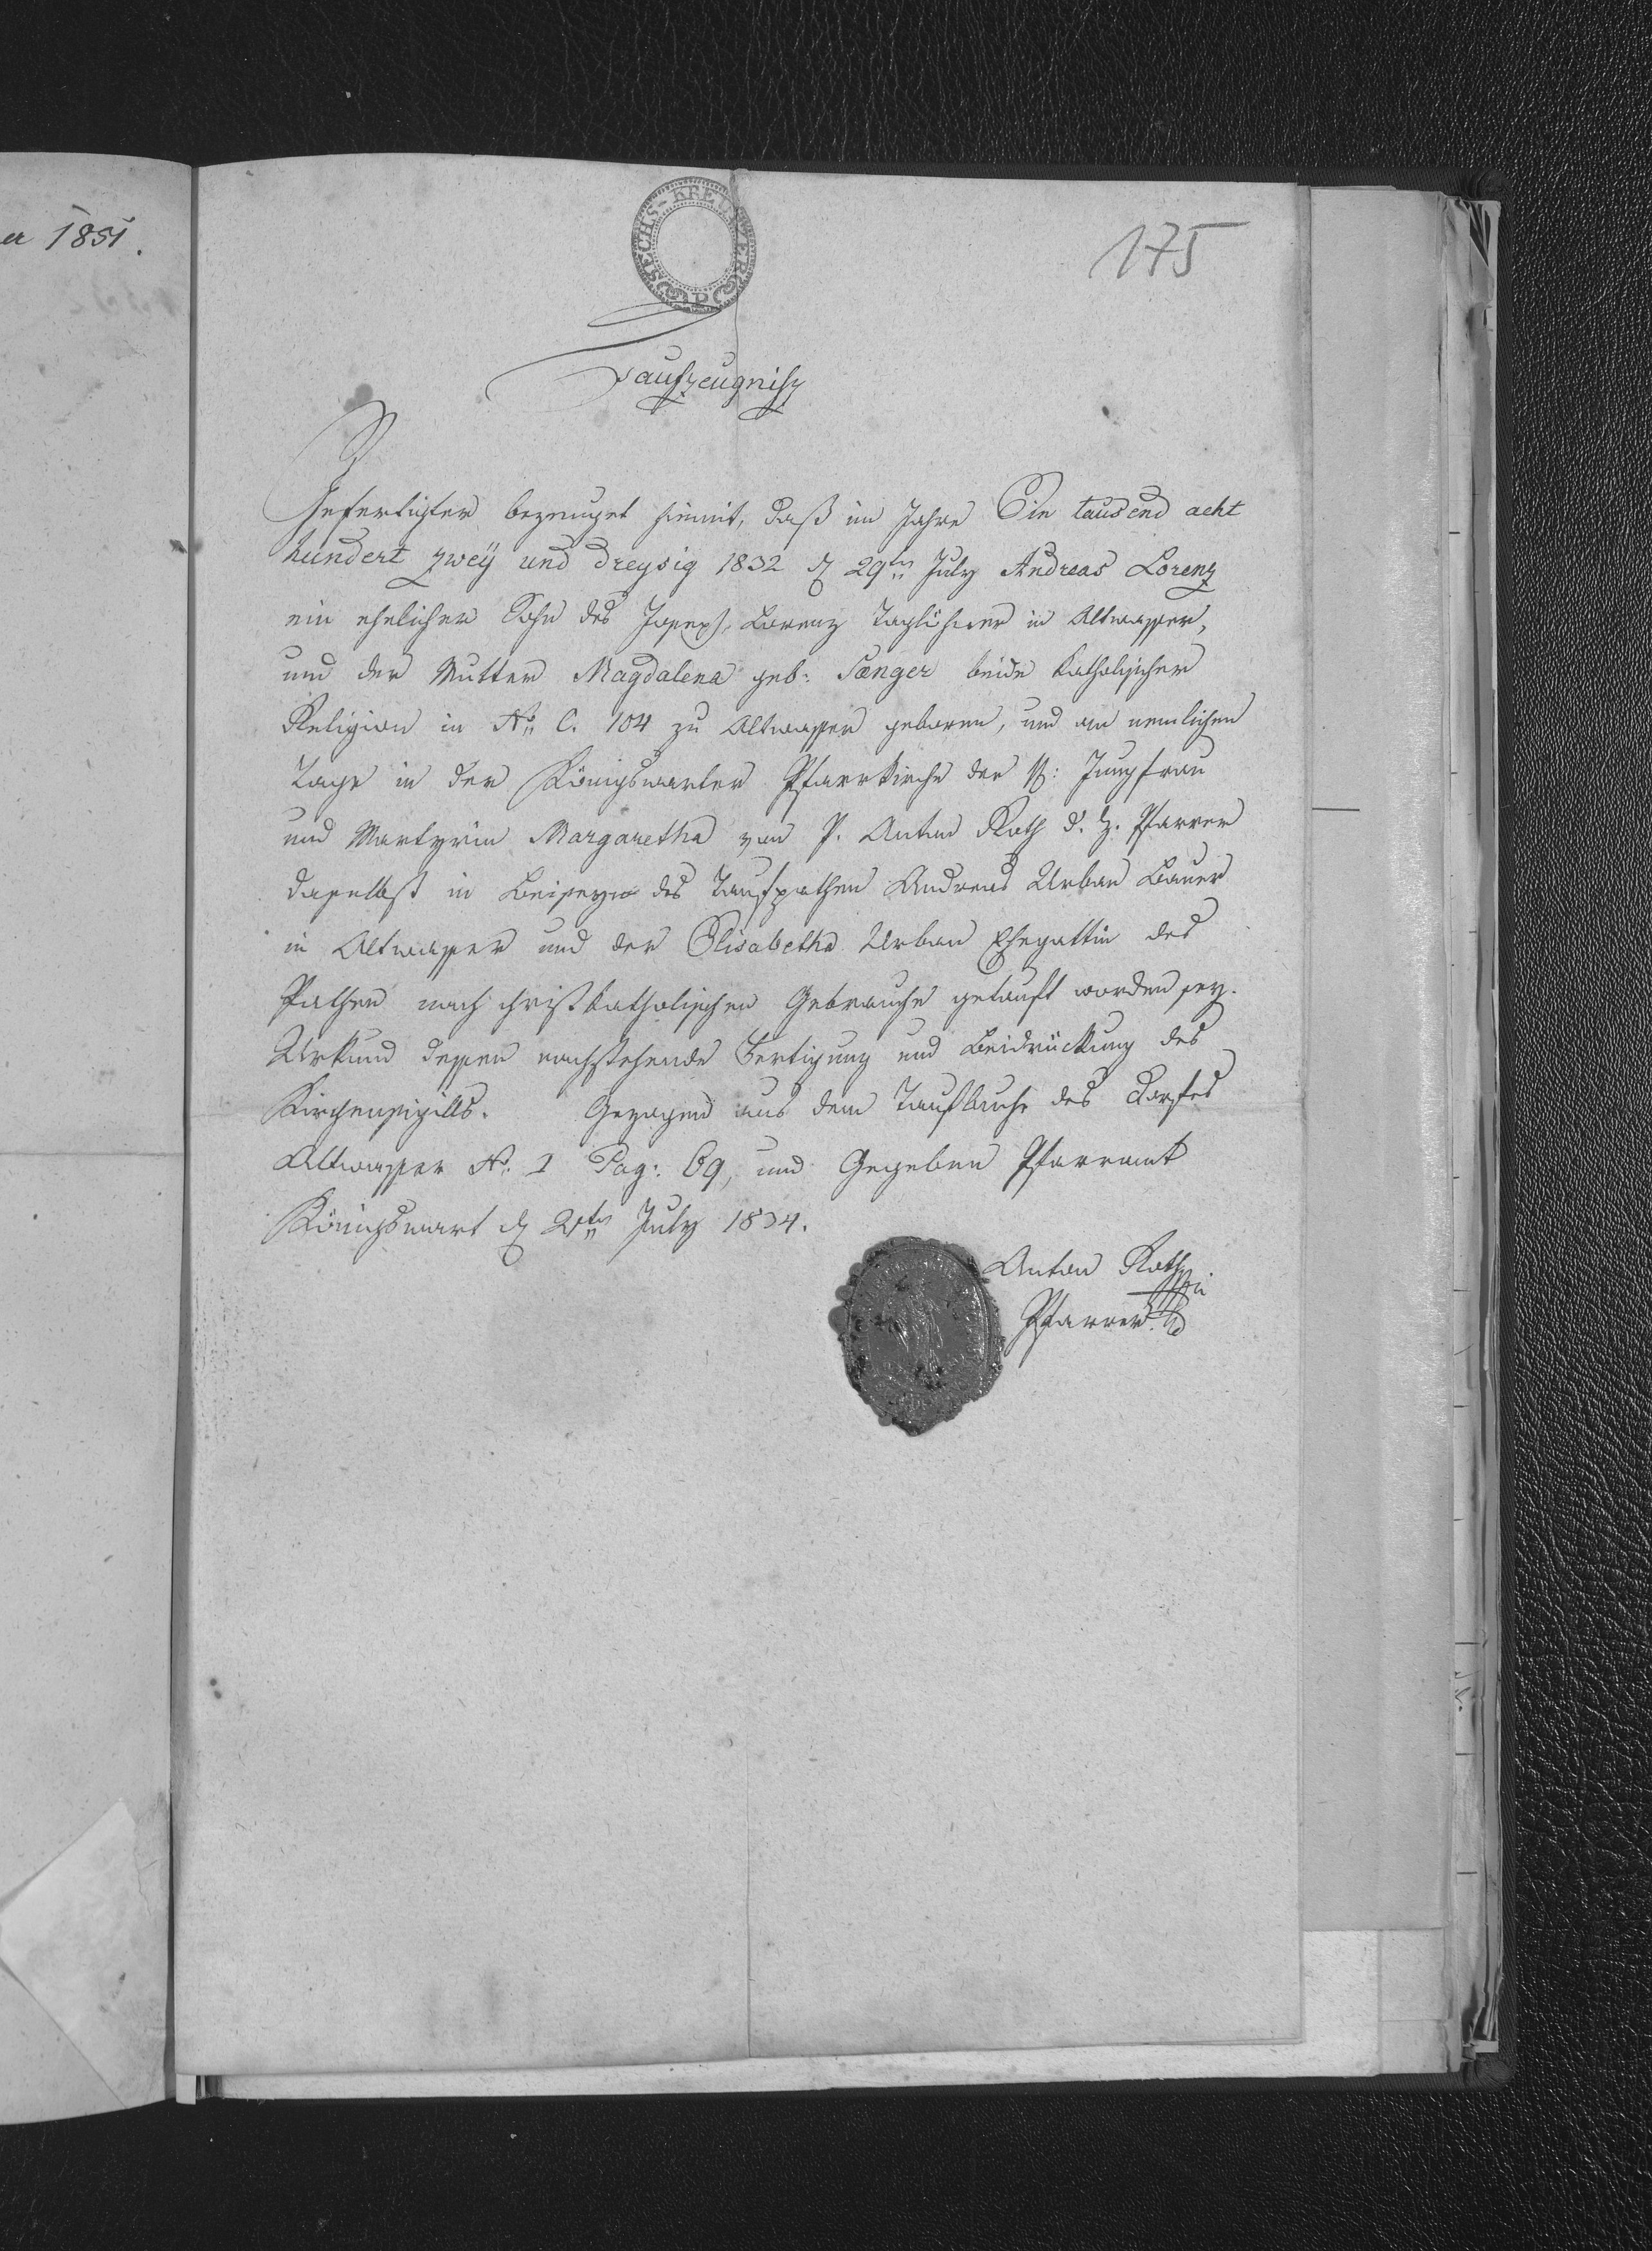 er 1851.
SECHS-KREUTZER
175
Taufzeugniß
Gefertigter bezeuget hiemit, daß im Jahre Ein tausend acht
hundert zweÿ und dreysig 1832 d 29ten July Andreas Lorenz
ein ehelicher Sohn des Joseph Lorenz Taglöhner in Altwasser,
und der Mutter Magdalena geb: Sænger beide katholischer
Religion in No C. 104 zu Altwasser geboren, und am nemlichen
Tage in der Königswarter Pfarrkirche der H: Jungfrau
und Martyrin Margaretha von P. Anton Roth d. Z. Pfarrer
daselbst in Beiseyn des Taufpathen Andreas Urban Bauer
in Altwasser und der Elisabetha Urban Ehegattin des
Pathen nach christkatholischen Gebrauche getauft worden sey.
Urkund dessen nachstehende Fertigung und Beidrückung des
Kirchensigills. Gezogen aus dem Taufbuche des Dorfes
Altwasser No: I Pag: 69, und Gegeben Pfarramt
Königswart d 21ten July 1834.
Anton Roth
Pfarrer